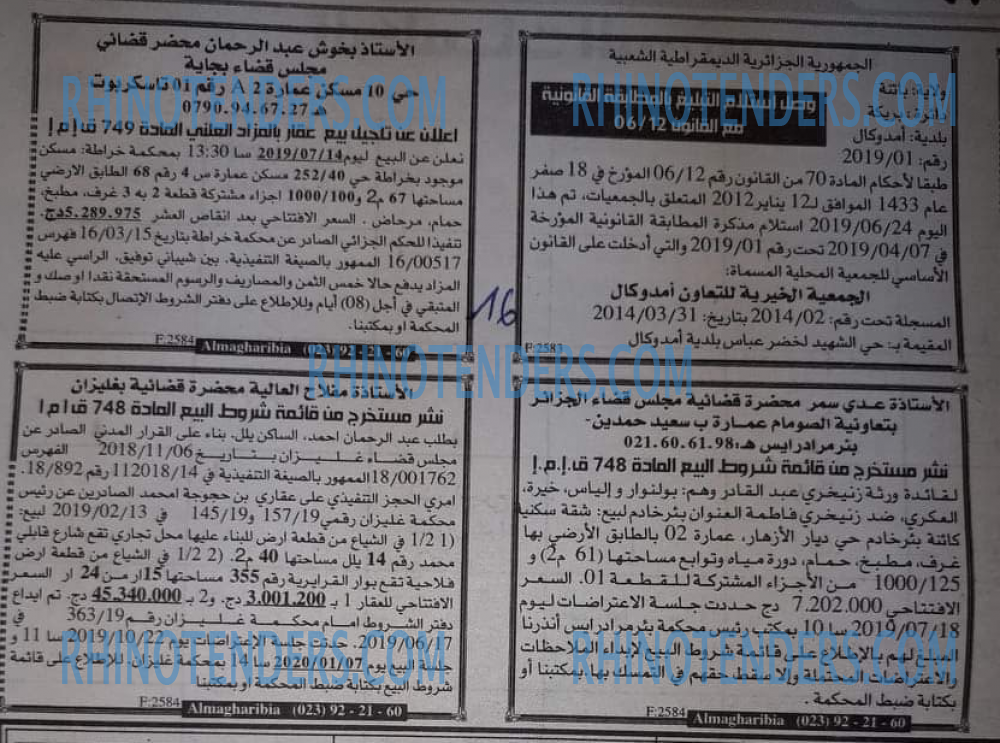 الجمهورية الجزائرية الديمقراطية الشعبية
ولاية: باتنة
دائرة: بريكة
بلدية: أمدوكال
رقم: 2019/01
وصل استلام التبليغ بالمطابقة القانونية
مع القانون 06/12
طبقا لأحكام المادة 70 من القانون رقم 06/12 المؤرخ في 18 صفر
عام 1433 الموافق لـ12 يناير 2012 المتعلق بالجمعيات، تم هذا
اليوم 2019/06/24 استلام مذكرة المطابقة القانونية المؤرخة
في 2019/04/07 تحت رقم 2019/01 والتي أدخلت على القانون
الأساسي للجمعية المحلية المسماة:
الجمعية الخيرية للتعاون أمدوكال
المسجلة تحت رقم: 2014/02 بتاريخ: 2014/03/31
المقيمة بـ: حي الشهيد لخضر عباس بلدية أمدوكال
F:2583
الأستاذ بخوش عبد الرحمان محضر قضائي
مجلس قضاء بجاية
حي 10 مسكن عمارة A 2 رقم 01 تاسكريوت
0790.94.67.27
اعلان عن تاجيل بيع عقار بالمزاد العلني المادة 749 ق ا م ا
نعلن عن البيع ليوم 2019/07/14 سا 13:30 بمحكمة خراطة: مسكن
موجود بخراطة حي 252/40 مسكن عمارة س 4 رقم 68 الطابق الارضي
مساحتها 67 م2 و1000/100 اجزاء مشتركة قطعة 2 به 3 غرف، مطبخ،
حمام، مرحاض. السعر الافتتاحي بعد انقاص العشر 5.289.975دج.
تنفيذا للحكم الجزائي الصادر عن محكمة خراطة بتاريخ 16/03/15 فهرس
16/00517 الممهور بالصيغة التنفيذية. بين شيباني توفيق. الراسي عليه
المزاد يدفع حالا خمس الثمن والمصاريف والرسوم المستحقة نقدا او صك و
المتبقي في أجل (08) أيام وللإطلاع على دفتر الشروط الإتصال بكتابة ضبط
المحكمة او بمكتبنا.
F:2584
Almagharibia (023) 92 - 21 - 60
16
الأستاذة عدي سمر محضرة قضائية مجلس قضاء الجزائر
بتعاونية الصومام عمارة ب سعيد حمدين-
بئر مراد رايس هـ: 021.60.61.98
نشر مستخرج من قائمة شروط البيع المادة 748 ق.إ.م.إ
لفائدة ورثة زنيخري عبد القادر وهم: بولنوار و إلياس، خيرة،
المكري، ضد زنيخري فاطمة العنوان بئر خادم لبيع: شقة سكنية
كائنة بئر خادم حي ديار الأزهار، عمارة 02 بالطابق الأرضي بها
غرف، مطبخ، حمام، دورة مياه وتوابع مساحتها (61 م2) و
1000/125 من الأجزاء المشتركة للقطعة 01. السعر
الافتتاحي 7.202.000 دج حددت جلسة الاعتراضات ليوم
2019/07/18 سا 10 بمكتب رئيس محكمة بئر مراد رايس أنذرنا
المبلغ لهم بالإطلاع على قائمة شروط البيع لإبداء الملاحظات
والاعتراضات المحتملة وإلا سقط حقهم في التمسك بها بمكتبنا أو
بكتابة ضبط المحكمة.
F:2584
Almagharibia (023) 92 - 21 - 60
الأستاذة مفلاح العالية محضرة قضائية بغليزان
نشر مستخرج من قائمة شروط البيع المادة 748 ق ا م ا
بطلب عبد الرحمان احمد، الساكن يلل. بناء على القرار المدني الصادر عن
مجلس قضاء غليزان بتاريخ 2018/11/06 الفهرس
18/001762 الممهور بالصيغة التنفيذية في 112018/14 رقم 18/892.
امري الحجز التنفيذي على عقاري بن حجوجة امحمد الصادرين عن رئيس
محكمة غليزان رقمي 157/19 و145/19 في 2019/02/13 لبيع:
1) 1/2 في الشياع من قطعة ارض للبناء عليها محل تجاري تقع شارع قابلي
محمد رقم 14 يلل مساحتها 40 م2. 2) 1/2 في الشياع من قطعة ارض
فلاحية تقع بوار القرايرية رقم 355 مساحتها 15ار من 24 ار السعر
الافتتاحي للعقار 1 بـ 3.001.200 دج. و2 بـ 45.340.000 دج. تم ايداع
دفتر الشروط امام محكمة غليزان رقم 363/19 في
2019/06/17. حددت جلسة الاعتراضات يوم 2019/10/22 سا 11 و
جلسة البيع يوم 2020/01/07 سا 14 بمحكمة غليزان. للإطلاع على قائمة
شروط البيع بكتابة ضبط المحكمة او بمكتبنا
F:2584
Almagharibia (023) 92 - 21 - 60
RHINOTENDERS.COM
RHINOTENDERS.COM
RHINOTENDERS.COM
RHINOTENDERS.COM
RHINOTENDERS.COM